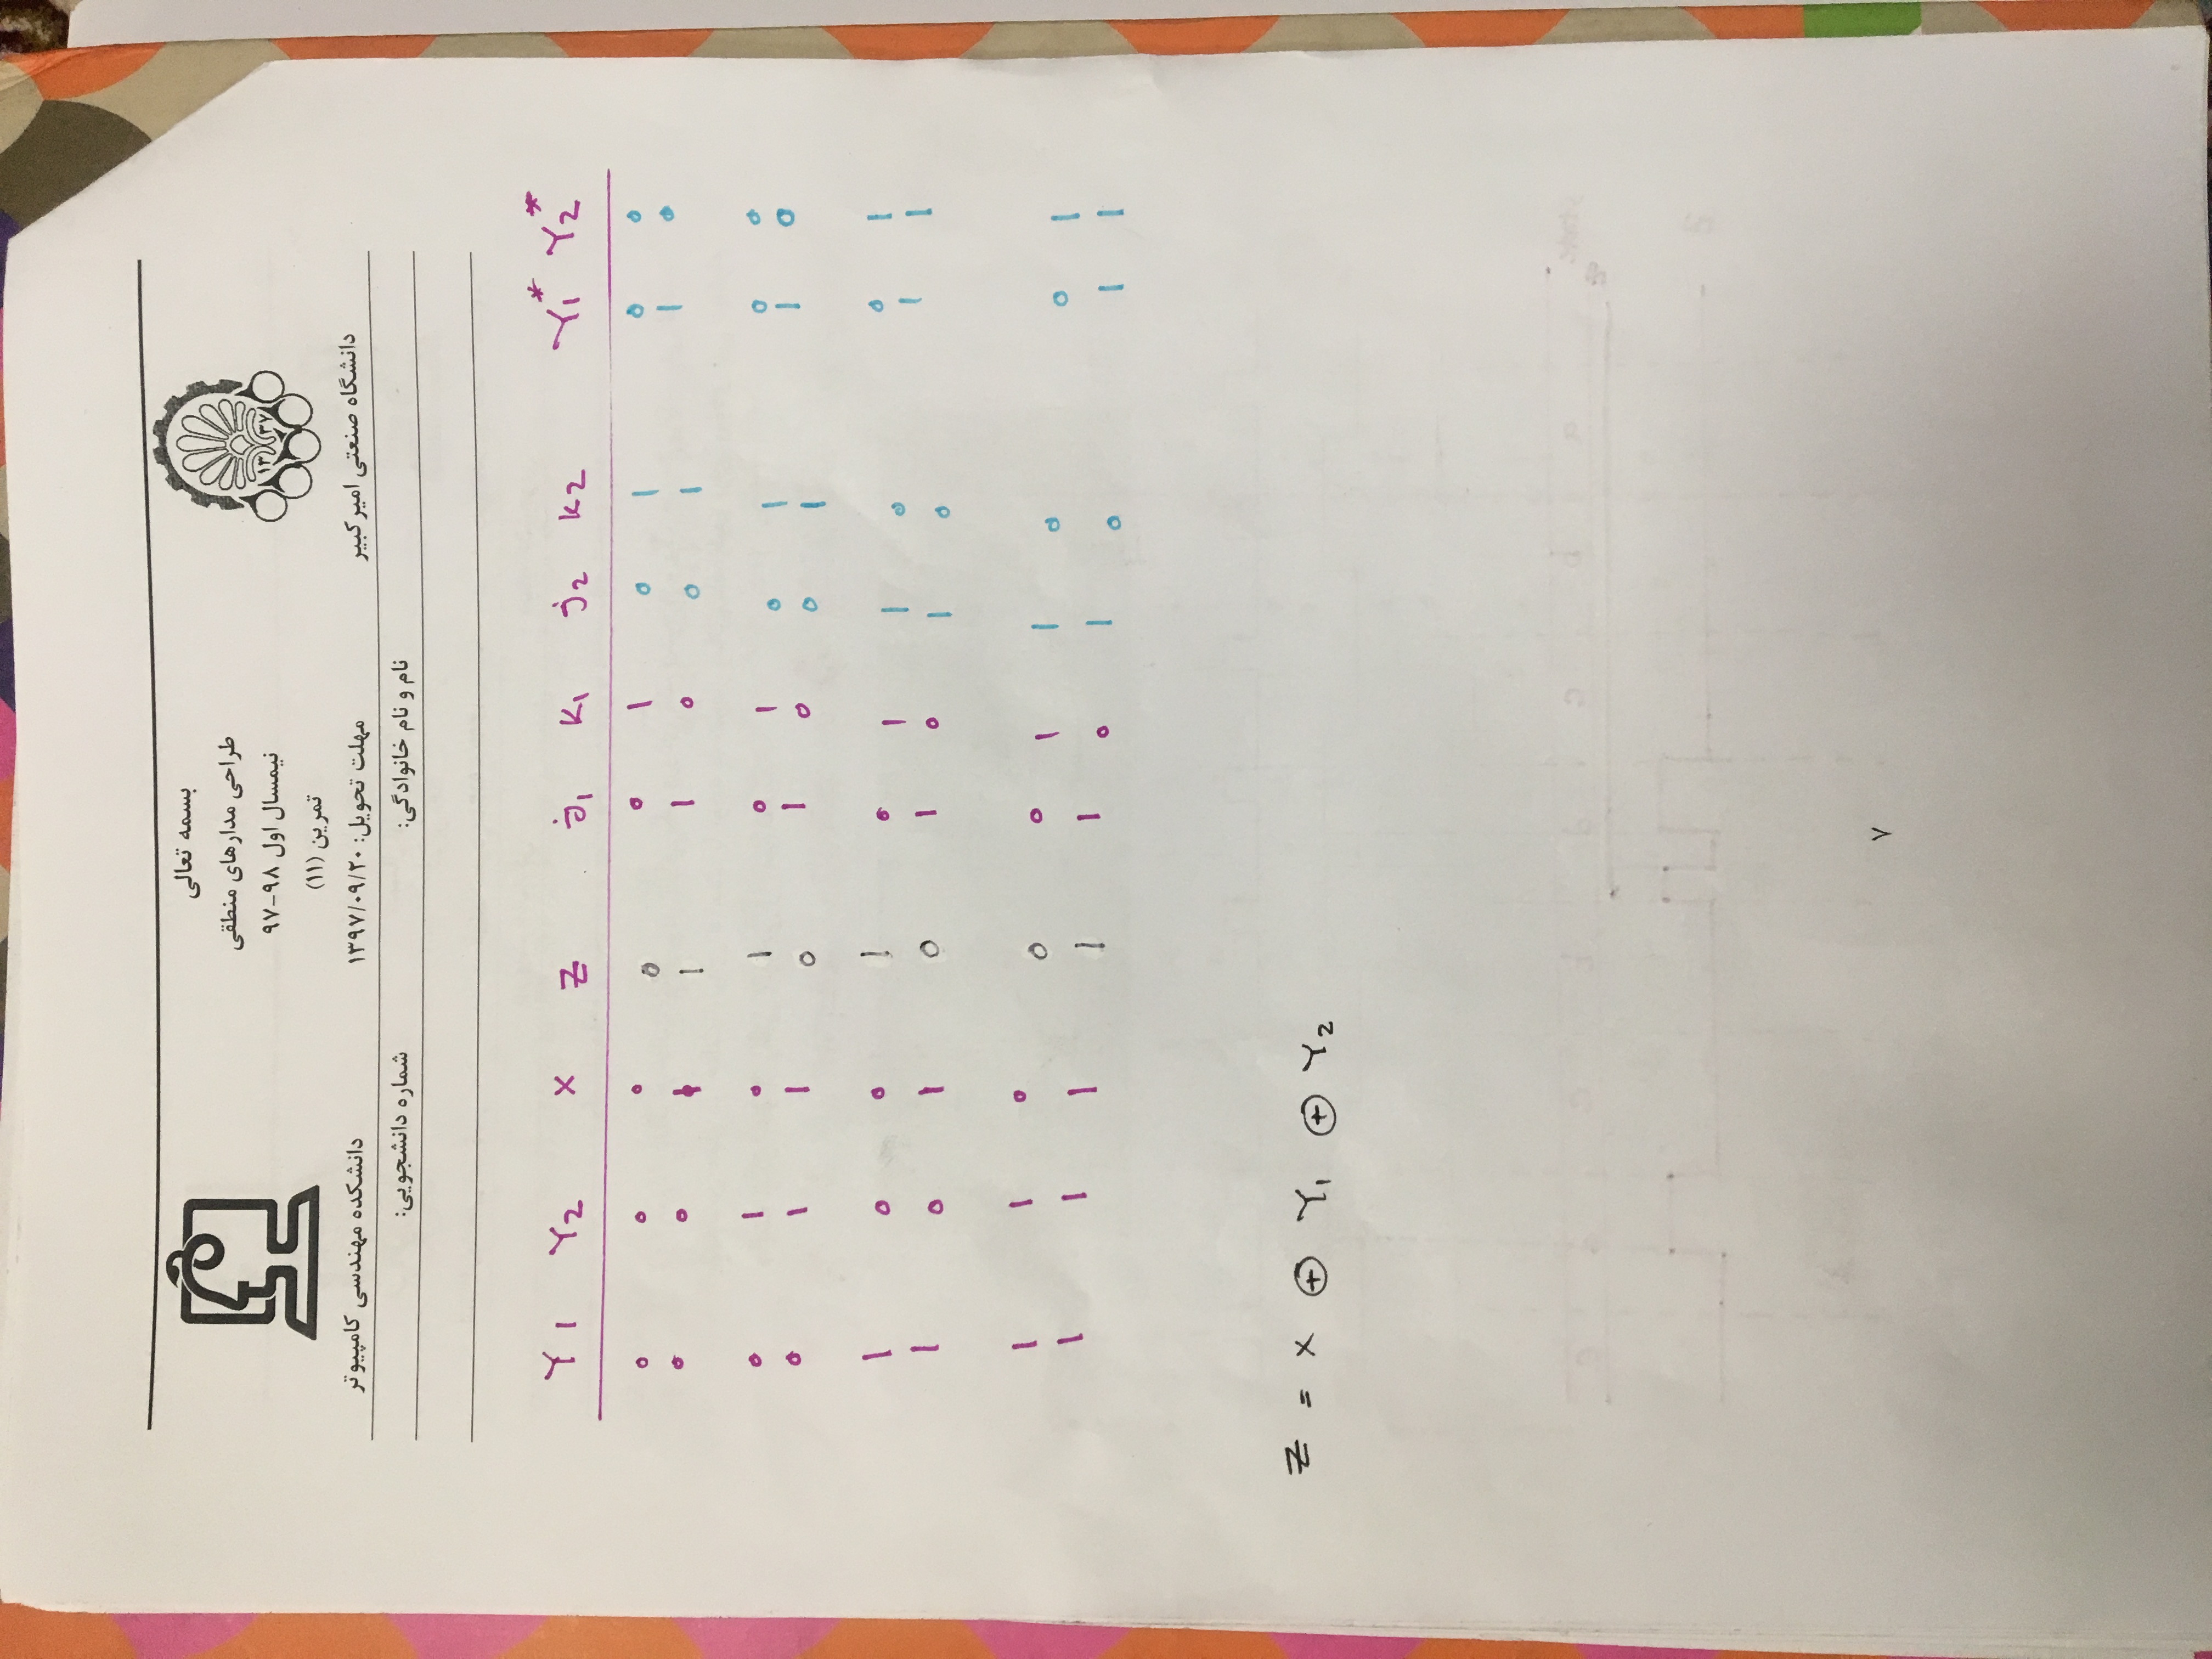 بسمه تعالی
طراحی مدارهای منطقی
نیمسال اول ۹۸-۹۷
تمرین (۱۱)
۱۳ ۳۷
دانشگاه صنعتی امیرکبیر
مهلت تحویل: ۱۳۹۷/۰۹/۲۰
دانشکده مهندسی کامپیوتر
نام و نام خانوادگی: شماره دانشجویی:
Y1 Y2 X Z j1 K1 j2 K2 Y1* Y2*
0 0 0 0 0 1 0 1 0 0
0 0 1 1 1 0 0 1 1 0
0 1 0 1 0 1 0 1 0 0
0 1 1 0 1 0 0 1 1 0
1 0 0 1 0 1 1 0 0 1
1 0 1 0 1 0 1 0 1 1
1 1 0 0 0 1 1 0 0 1
1 1 1 1 1 0 1 0 1 1
Z = X ⊕ Y1 ⊕ Y2
۷